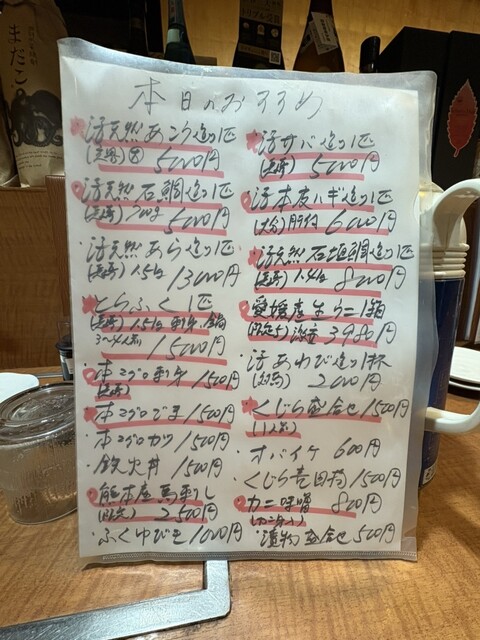 本日のおすすめ
活天然あこう造り1匹
5000円
活天然石鯛造り1匹
(長崎) 700g 5000円
活天然あら造り1匹
(長崎) 1.5k 13000円
とらふく1匹
(長崎) 1.5k 刺身、鍋
3〜4人前 15000円
本マグロ刺身 1500円
(長崎)
本マグロごま 1500円
本マグロカツ 1500円
鉄火丼 1500円
熊本産馬刺し
2500円
ふくゆびき 1000円
活サバ造り1匹
(長崎) 5000円
活本皮ハギ造り1匹
(大分) 肝付 6000円
活天然石垣鯛造り1匹
(長崎) 1.4k 8000円
愛媛産生ウニ1箱
3980円
活あわび造り1杯
2000円
くじら盛合せ 1500円
(1人前)
オバイケ 600円
くじら竜田揚 1500円
カニ味噌 800円
漬物盛合せ 500円
またこ